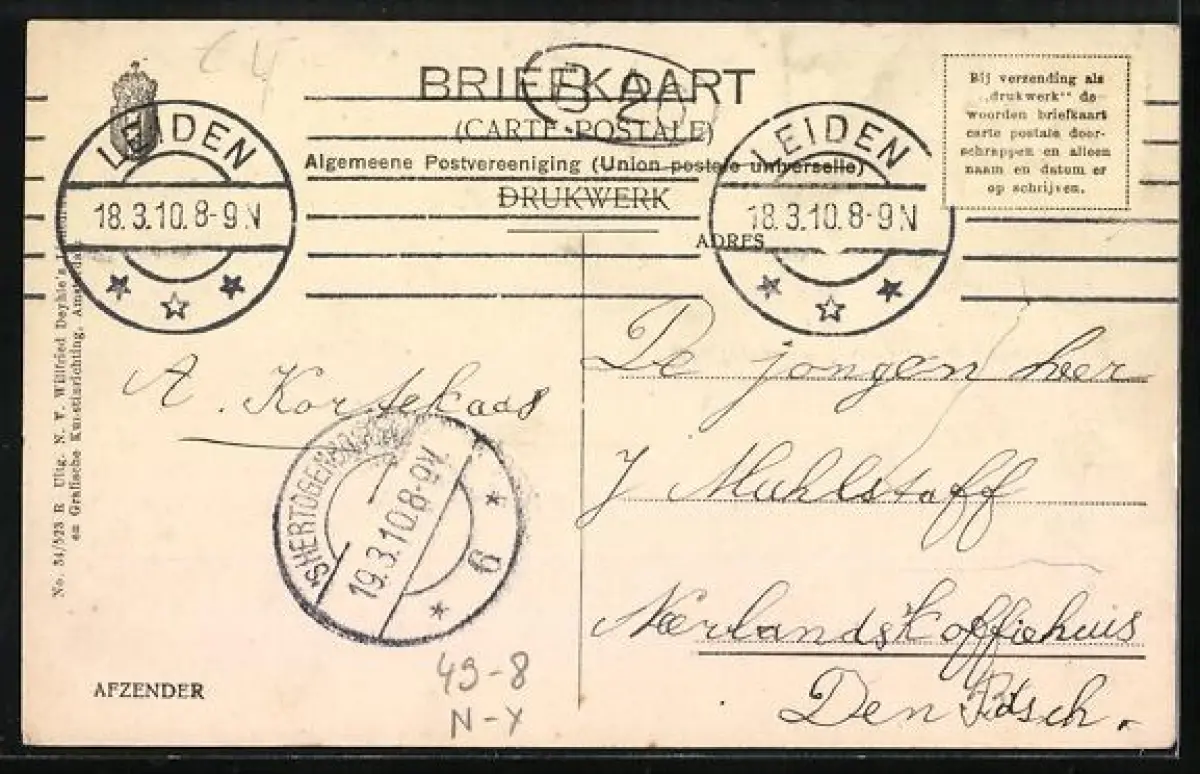 BRIEFKAART
(CARTE POSTALE)
Algemeene Postvereeniging (Union postale universelle)
DRUKWERK
Bij verzending als
„drukwerk“ de
woorden briefkaart
carte postale door-
schrappen en alleen
naam en datum er
op schrijven.
B 2
LEIDEN
18.3.10.8-9 N
LEIDEN
18.3.10.8-9 N
ADRES
A. Kortekaas
'SHERTOGENBOSCH
19.3.10.8-9V.
6
De jongen heer
J Muhlstaff
Neerlands Koffiehuis
Den Bosch.
No. 54/523 R Uitg. N. V. Willfried Deyhle's
en Grafische Kunstinrichting, Amsterdam
AFZENDER
49-8
N-Y